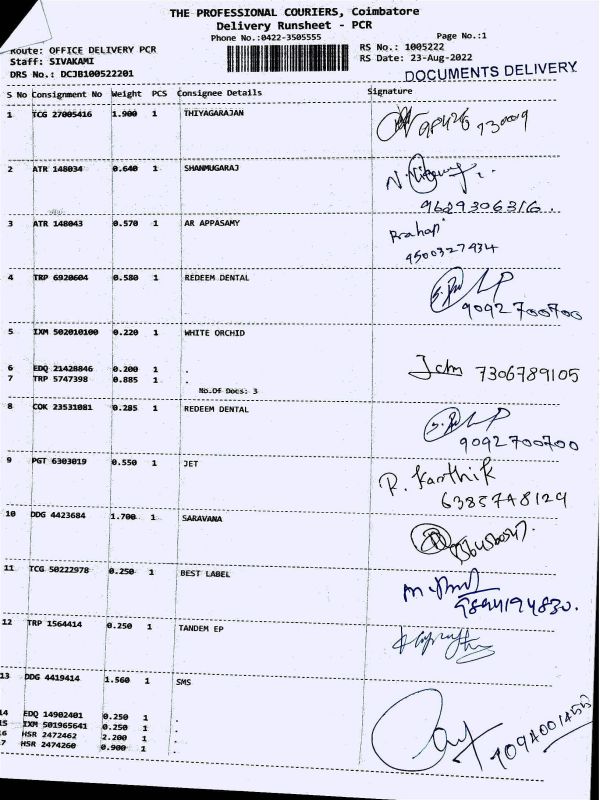 THE PROFESSIONAL COURIERS, Coimbatore
Delivery Runsheet - PCR
Phone No.:0422-3505555
Page No.:1
Route: OFFICE DELIVERY PCR
RS No.: 1005222
Staff: SIVAKAMI
RS Date: 23-Aug-2022
DRS No.: DCJB100522201
DOCUMENTS DELIVERY
S No Consignment No Weight PCS Consignee Details Signature
1 TCG 27005416 1.900 1 THIYAGARAJAN
2 ATR 148034 0.640 1 SHANMUGARAJ
9689306316.
3 ATR 148043 0.570 1 AR APPASAMY
Prahap
4500327434
4 TRP 6920604 0.580 1 REDEEM DENTAL
9092700700
5 IXM 502010100 0.220 1 WHITE ORCHID
6 EDQ 21428846 0.200 1 .
John 7306789105
7 TRP 5747398 0.885 1 .
No.Of Docs: 3
8 COK 23531081 0.285 1 REDEEM DENTAL
9092700700
9 PGT 6303019 0.550 1 JET
P. Karthik
6385748129
10 DDG 4423684 1.700 1 SARAVANA
11 TCG 50222978 0.250 1 BEST LABEL
9894194830.
12 TRP 1564414 0.250 1 TANDEM EP
13 DDG 4419414 1.560 1 SMS
14 EDQ 14902401 0.250 1 .
15 IXM 501965641 0.250 1 .
16 HSR 2472462 2.200 1 .
7 HSR 2474260 0.900 1 .